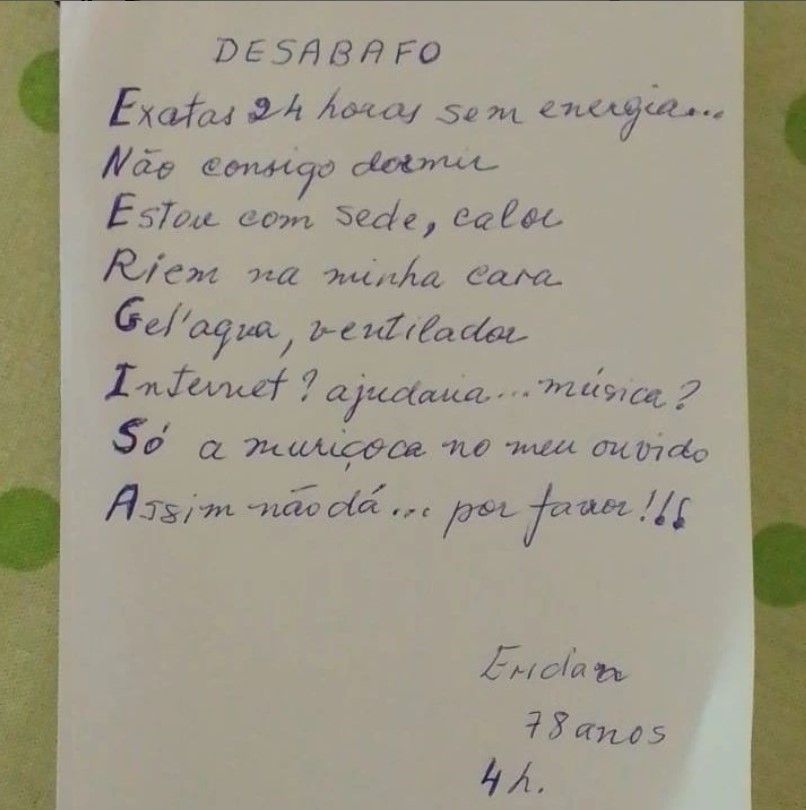 DESABAFO
Exatas 24 horas sem energia...
Não consigo dormir
Estou com sede, calor
Riem na minha cara
Gel'agua, ventilador
Internet? ajudaria... música?
Só a muriçoca no meu ouvido
Assim não dá... por favor!!!
78 anos
4 h.